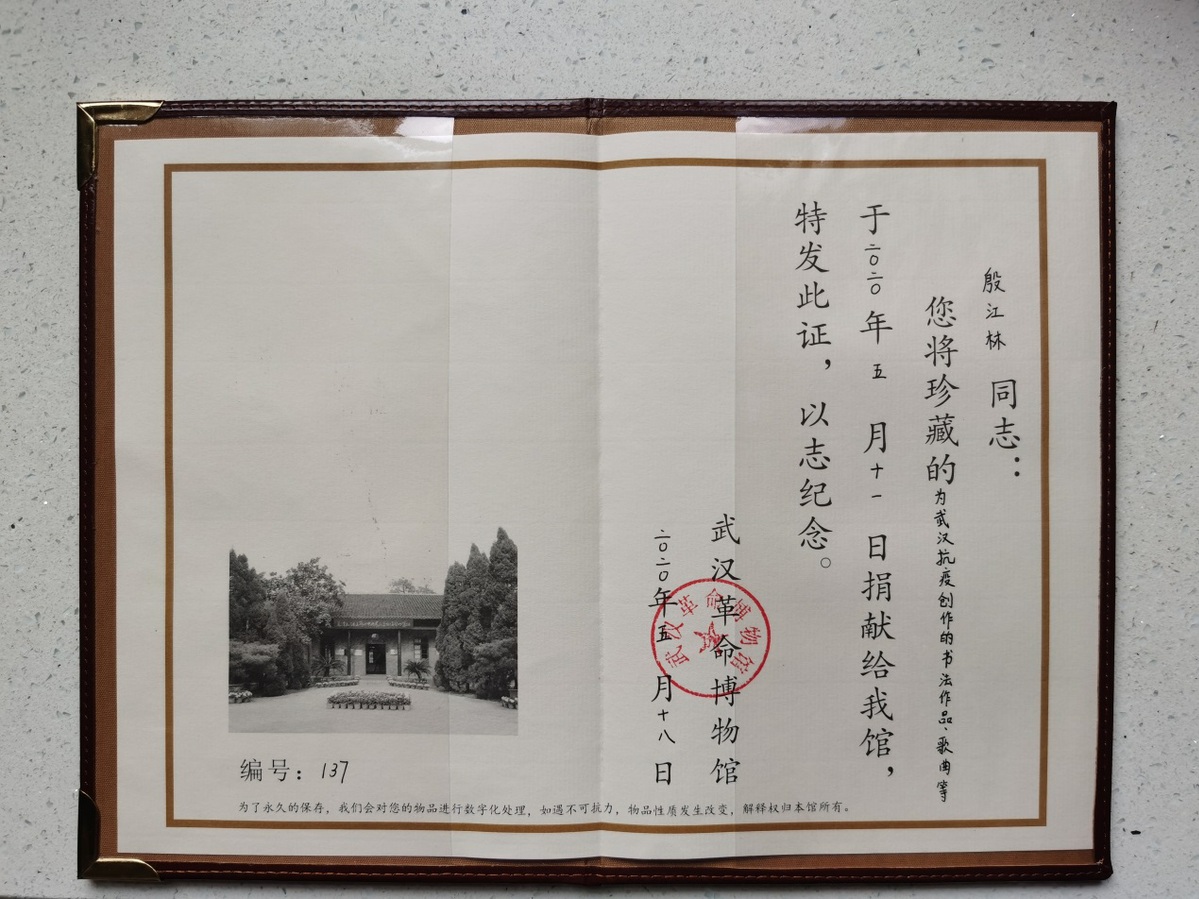 殷江林 同志：
您将珍藏的为武汉抗疫创作的书法作品、歌曲等
于二〇二〇年五月十一日捐献给我馆，
特发此证，以志纪念。
武汉革命博物馆
二〇二〇年五月十八日
武汉革命博物馆
编号：137
为了永久的保存，我们会对您的物品进行数字化处理，如遇不可抗力，物品性质发生改变，解释权归本馆所有。